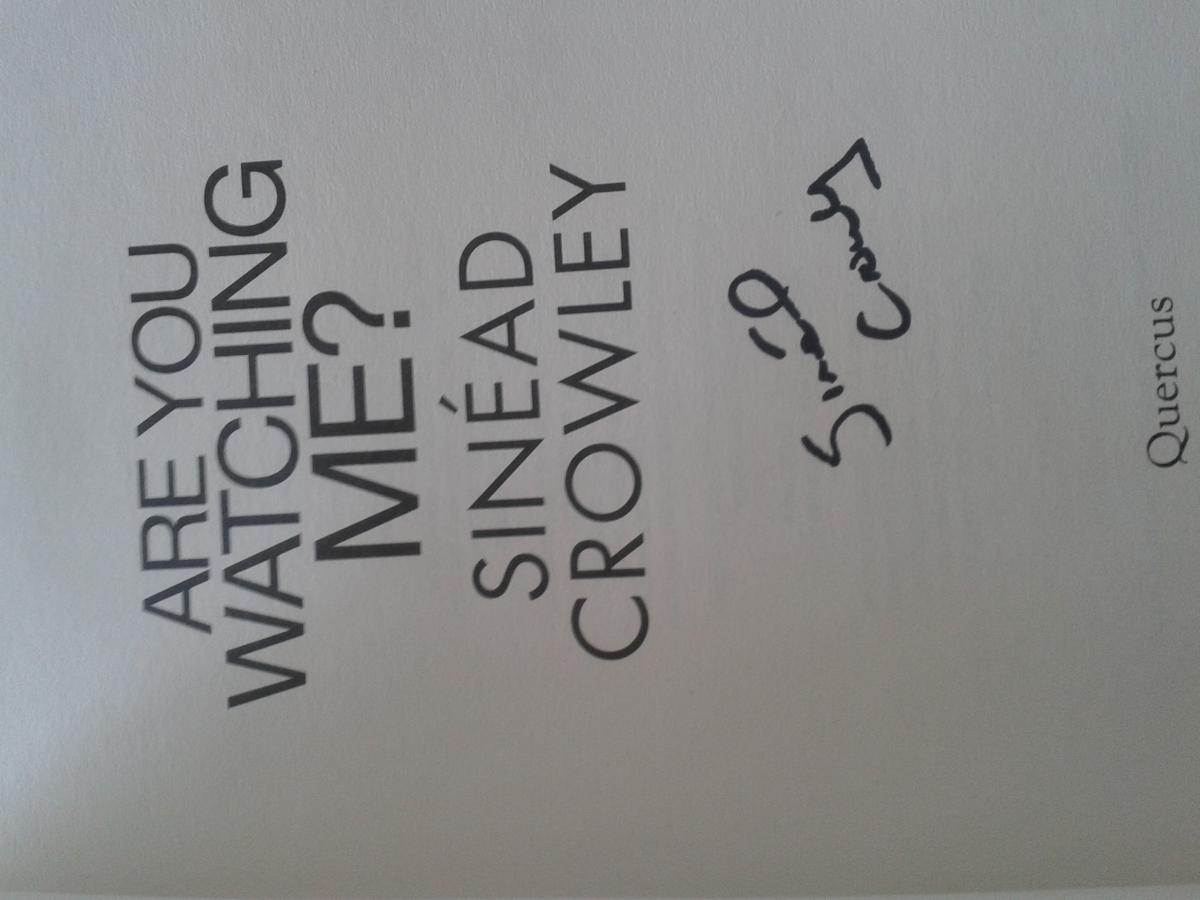 ARE YOU
WATCHING
ME?
SINÉAD
CROWLEY
Sinéad
Crowley
Quercus